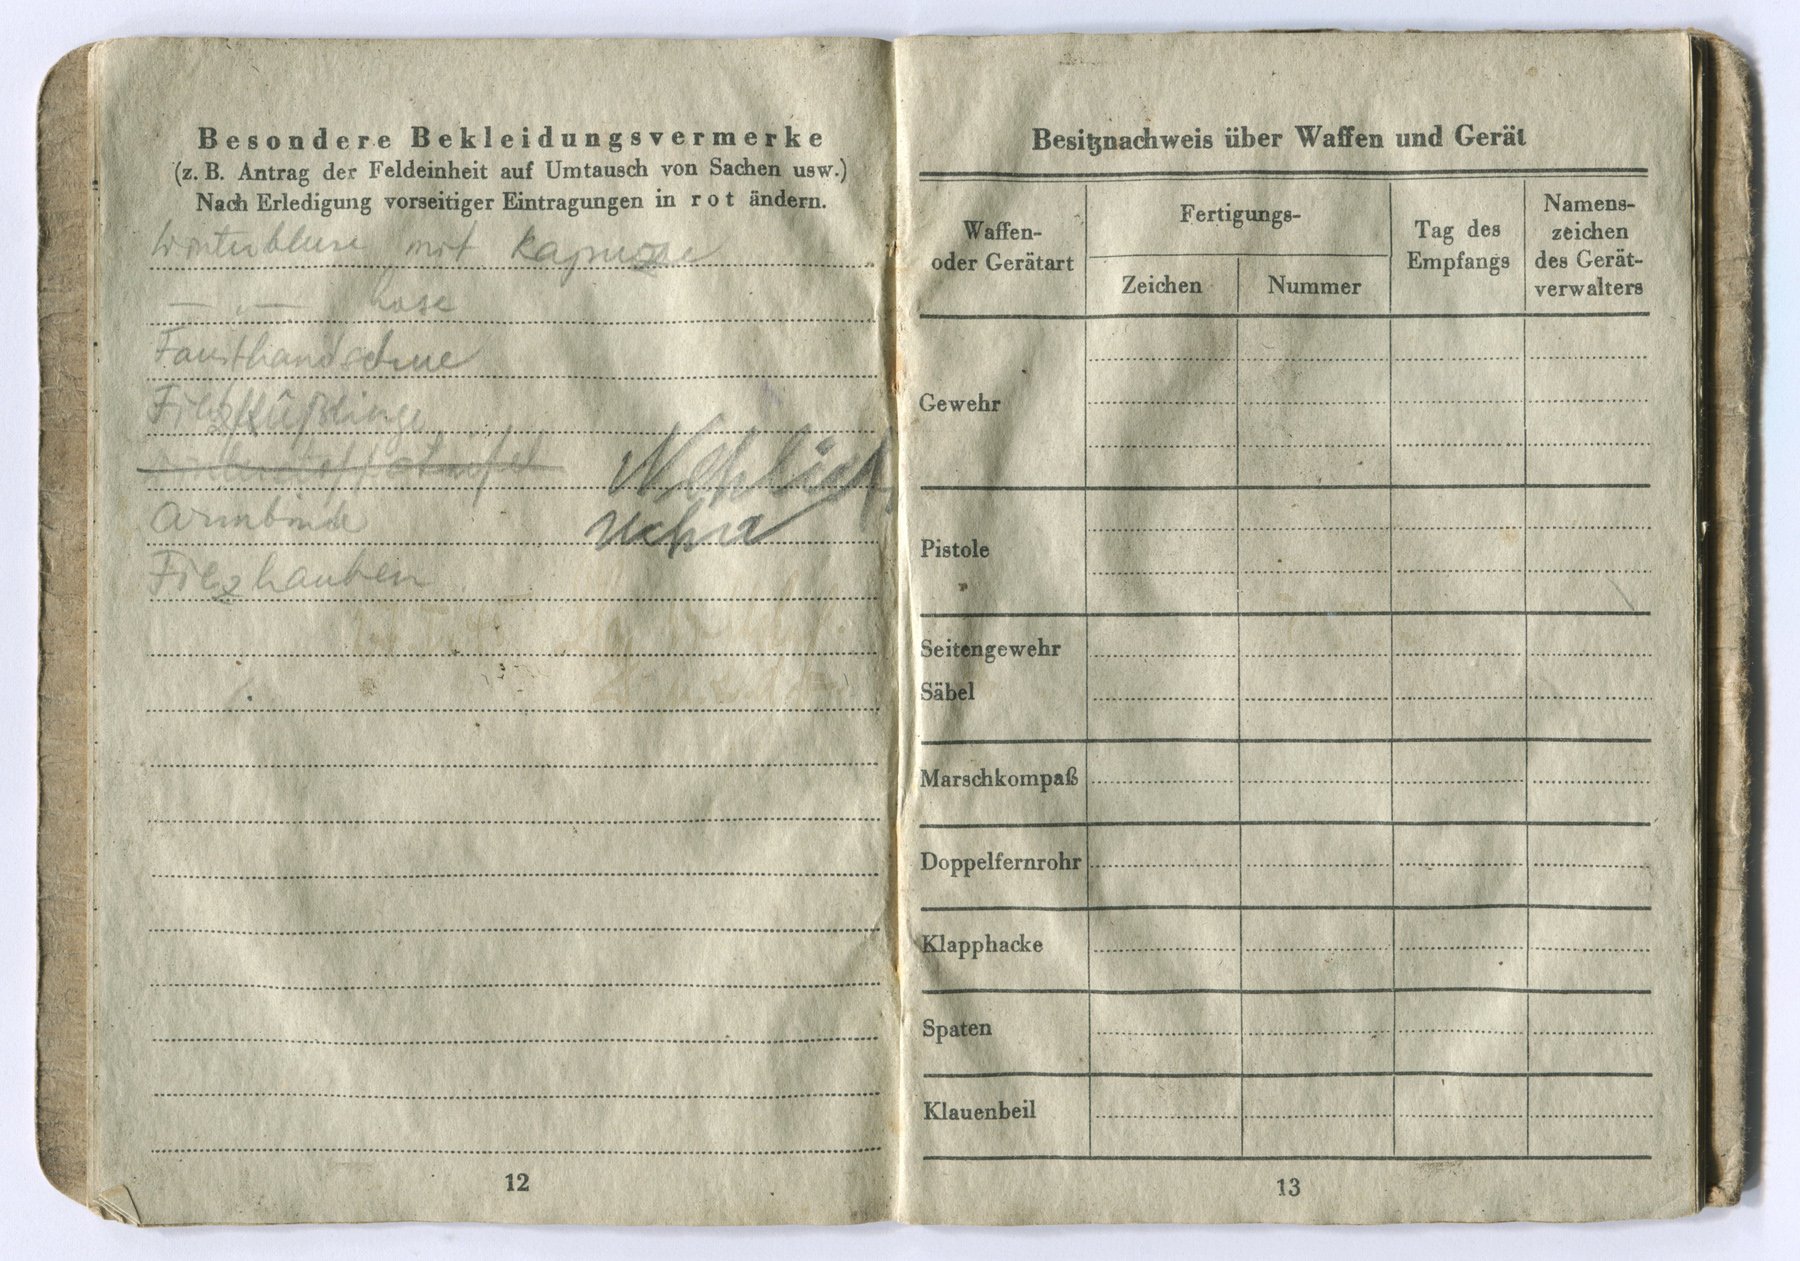 Besondere Bekleidungsvermerke
(z. B. Antrag der Feldeinheit auf Umtausch von Sachen usw.)
Nach Erledigung vorseitiger Eintragungen in rot ändern.
Winterbluse mit Kapuze
— " — hose
Fausthandschue
Filzfüßlinge
Armbinde
Filzhauben
12
Besitznachweis über Waffen und Gerät
Waffen-
oder Gerätart
Fertigungs-
Zeichen
Nummer
Tag des
Empfangs
Namens-
zeichen
des Gerät-
verwalters
Gewehr
Pistole
Seitengewehr
Säbel
Marschkompaß
Doppelfernrohr
Klapphacke
Spaten
Klauenbeil
13